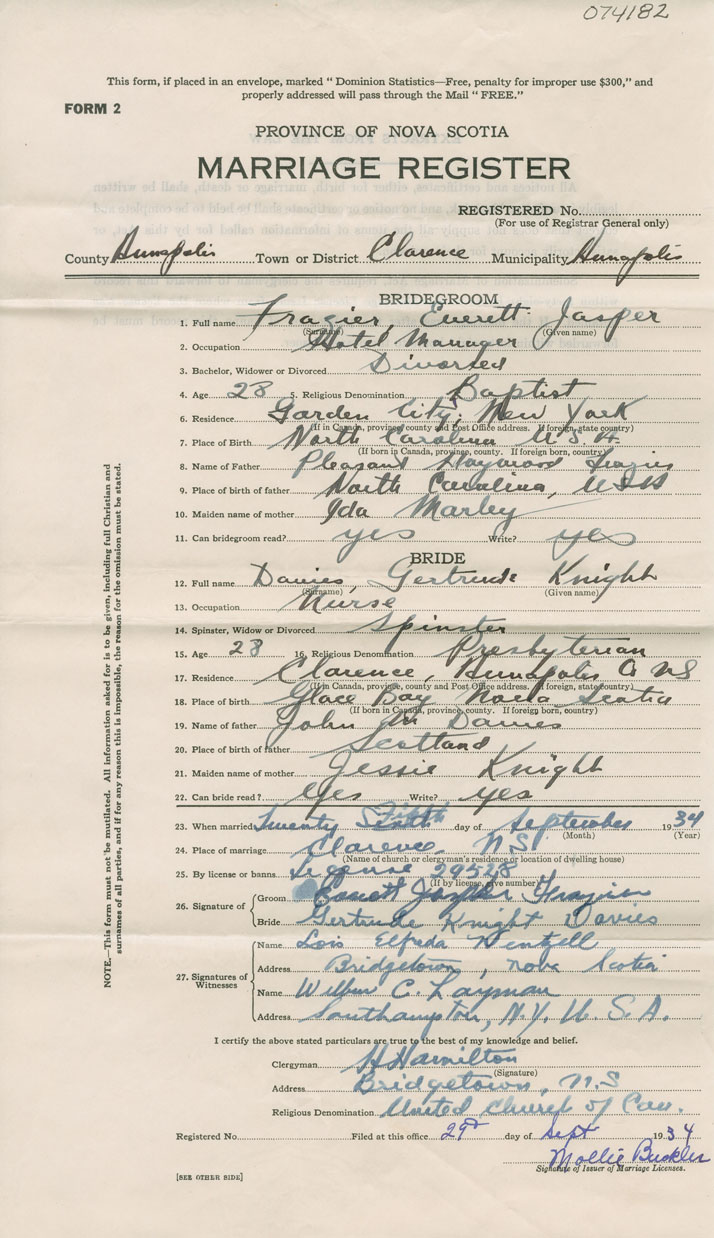 074182
This form, if placed in an envelope, marked “ Dominion Statistics—Free, penalty for improper use $300,” and
properly addressed will pass through the Mail “ FREE.”
FORM 2
PROVINCE OF NOVA SCOTIA
MARRIAGE REGISTER
REGISTERED No.
(For use of Registrar General only)
County Annapolis Town or District Clarence Municipality Annapolis
BRIDEGROOM
1. Full name Frazier, Everett Jasper
(Surname) (Given name)
2. Occupation Hotel Manager
3. Bachelor, Widower or Divorced Divorsed
4. Age 28 5. Religious Denomination Baptist
6. Residence Garden City, New York
(If in Canada, province, county and Post Office address. If foreign, state country)
7. Place of Birth North Carolina U.S.A.
(If born in Canada, province, county. If foreign born, country)
8. Name of Father Pleasant Haywood Frazier
9. Place of birth of father North Carolina, USA
10. Maiden name of mother Ida Marley
11. Can bridegroom read? yes Write? yes
BRIDE
12. Full name Davies, Gertrude Knight
(Surname) (Given name)
13. Occupation Nurse
14. Spinster, Widow or Divorced Spinster
15. Age 28 16. Religious Denomination Presbyterian
17. Residence Clarence, Annapolis Co NS
(If in Canada, province, county and Post Office address. If foreign, state country)
18. Place of birth Glace Bay Nova Scotia
(If born in Canada, province, county. If foreign born, country)
19. Name of father John Davies
20. Place of birth of father Scotland
21. Maiden name of mother Jessie Knight
22. Can bride read? yes Write? yes
23. When married Twenty day of September 1934
(Month) (Year)
24. Place of marriage Clarence, NS
(Name of church or clergyman's residence or location of dwelling house)
25. By license or banns License 29528
(If by license, give number)
26. Signature of
Groom Everett Jasper Frazier
Bride Gertrude Knight Davies
27. Signatures of Witnesses
Name Lois Elfreda Wentzell
Address Bridgetown, Nova Scotia
Name Wilbur C. Layman
Address Southampton, N.Y. U.S.A.
I certify the above stated particulars are true to the best of my knowledge and belief.
Clergyman H Hamilton
(Signature)
Address Bridgetown, N.S
Religious Denomination United Church of Can.
Registered No. Filed at this office 29th day of Sept 1934
Mollie Buckler
Signature of Issuer of Marriage Licenses.
[SEE OTHER SIDE]
NOTE.—This form must not be mutilated. All information asked for is to be given, including full Christian and
surnames of all parties, and if for any reason this is impossible, the reason for the omission must be stated.